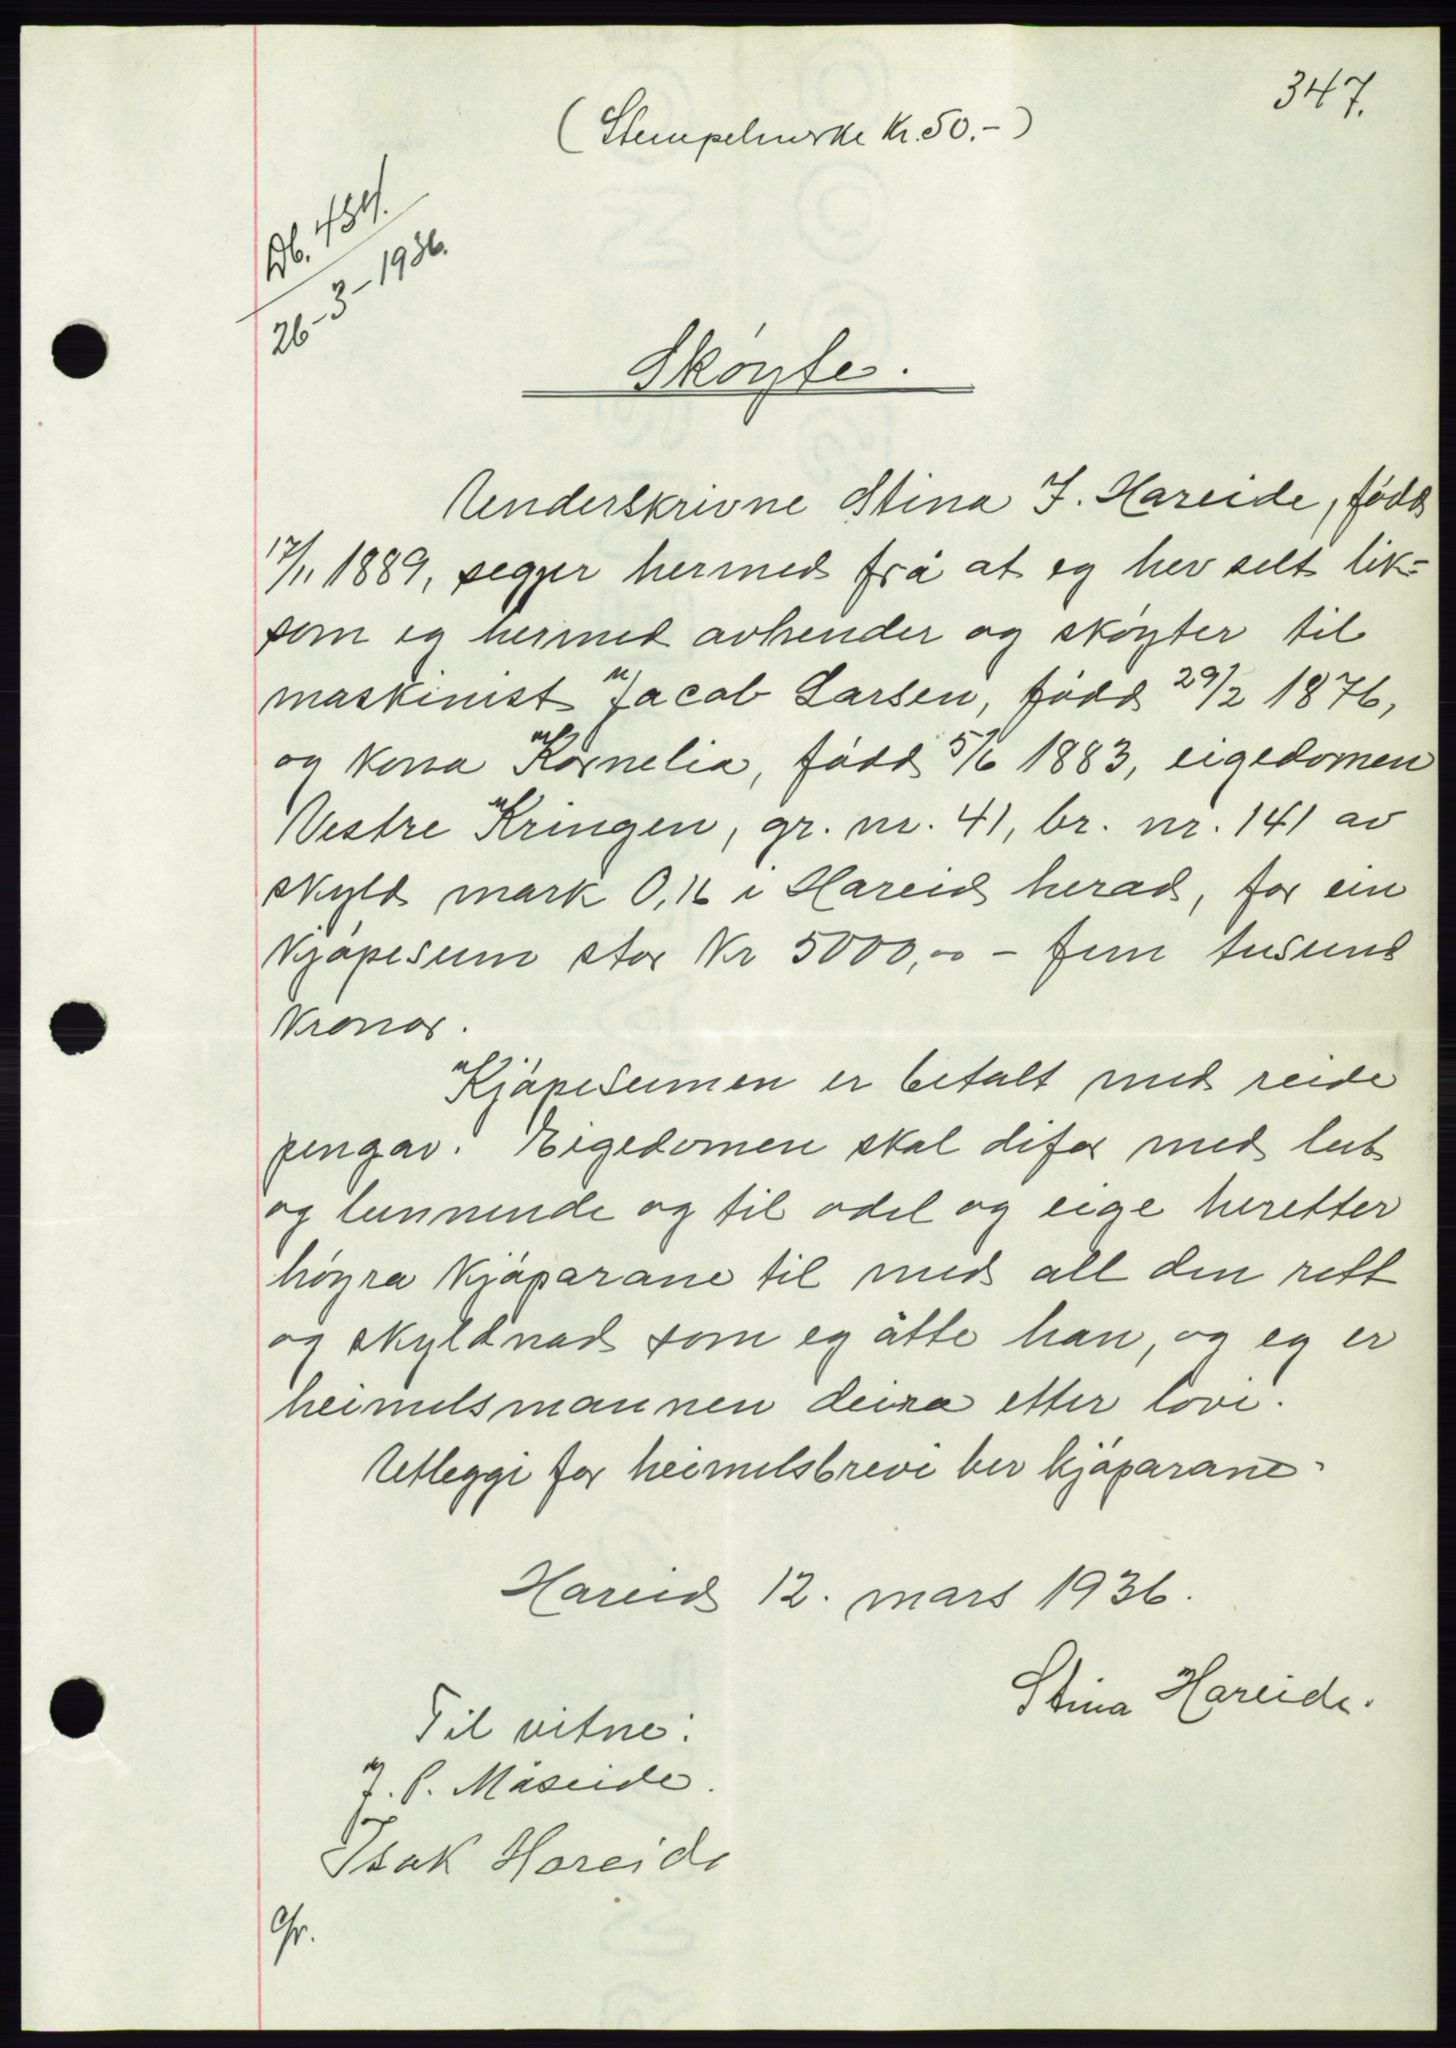 347.
(Stempelmerke Kr. 50.-)
Db. 484.
26-3-1936.
Skøyte.
Underskrivne Stina J. Hareide, fødd
17/11 1889, segjer hermed frå at eg hev selt lik=
som eg hermed avhender og skøyter til
maskinist Jacob Larsen, fødd 29/2 1876,
og kona Kornelia, fødd 5/6 1883, eigedomen
Vestre Kringen, gr. nr. 41, br. nr. 141 av
skyld mark 0,16 i Hareid herad, for ein
kjøpesum stor kr 5000,00 - fem tusund
kronor.
Kjøpesumen er betalt med reide
pengar. Eigedomen skal difor med lut
og lunnende og til odel og eige heretter
høyra kjøparane til med all den rett
og skyldnad som eg åtte han, og eg er
heimelsmannen deira etter lovi.
Utleggi for heimelsbrevi ber kjøparane.
Hareid 12. mars 1936.
Stina Hareide.
Til vitne:
J. P. Måseide.
Isak Hareide